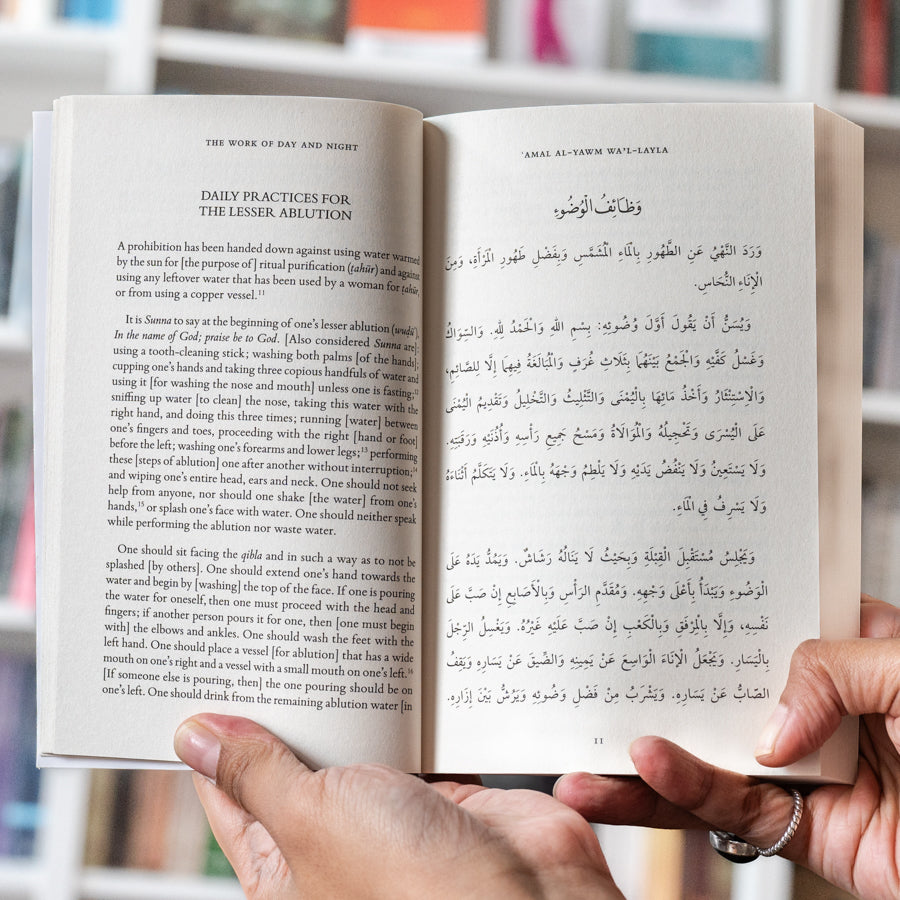 THE WORK OF DAY AND NIGHT
DAILY PRACTICES FOR
THE LESSER ABLUTION
A prohibition has been handed down against using water warmed
by the sun for [the purpose of] ritual purification (ṭahūr) and against
using any leftover water that has been used by a woman for ṭahūr,
or from using a copper vessel.¹¹
It is Sunna to say at the beginning of one's lesser ablution (wuḍūʾ),
In the name of God; praise be to God. [Also considered Sunna are]:
using a tooth-cleaning stick; washing both palms [of the hands];
cupping one's hands and taking three copious handfuls of water and
using it [for washing the nose and mouth] unless one is fasting;¹²
sniffing up water [to clean] the nose, taking this water with the
right hand, and doing this three times; running [water] between
one's fingers and toes, proceeding with the right [hand or foot]
before the left; washing one's forearms and lower legs;¹³ performing
these [steps of ablution] one after another without interruption;¹⁴
and wiping one's entire head, ears and neck. One should not seek
help from anyone, nor should one shake [the water] from one's
hands,¹⁵ or splash one's face with water. One should neither speak
while performing the ablution nor waste water.
One should sit facing the qibla and in such a way as to not be
splashed [by others]. One should extend one's hand towards the
water and begin by [washing] the top of the face. If one is pouring
the water for oneself, then one must proceed with the head and
fingers; if another person pours it for one, then [one must begin
with] the elbows and ankles. One should wash the feet with the
left hand. One should place a vessel [for ablution] that has a wide
mouth on one's right and a vessel with a small mouth on one's left.¹⁶
[If someone else is pouring, then] the one pouring should be on
one's left. One should drink from the remaining ablution water [in
ʿAMAL AL-YAWM WA'L-LAYLA
وَظَائِفُ الْوُضُوءِ
وَرَدَ النَّهْيُ عَنِ الطَّهُورِ بِالْمَاءِ الْمُشَمَّسِ وَبِفَضْلِ طَهُورِ الْمَرْأَةِ، وَمِنَ
الْإِنَاءِ النُّحَاسِ.
وَيُسَنُّ أَنْ يَقُولَ أَوَّلَ وُضُوئِهِ: بِسْمِ اللهِ وَالْحَمْدُ لِلهِ. وَالسِّوَاكُ
وَغَسْلُ كَفَّيْهِ وَالْجَمْعُ بَيْنَهُمَا بِثَلَاثِ غُرَفٍ وَالْمُبَالَغَةُ فِيهِمَا إِلَّا لِلصَّائِمِ،
وَالْاِسْتِنْثَارُ وَأَخْذُ مَائِهَا بِالْيُمْنَى وَالتَّثْلِيثُ وَالتَّخْلِيلُ وَتَقْدِيمُ الْيُمْنَى
عَلَى الْيُسْرَى وَتَحْجِيلُهُ وَالْمُوَالَاةُ وَمَسْحُ جَمِيعِ رَأْسِهِ وَأُذُنَيْهِ وَرَقَبَتِهِ.
وَلَا يَسْتَعِينُ وَلَا يَنْفُضُ يَدَيْهِ وَلَا يَلْطِمُ وَجْهَهُ بِالْمَاءِ. وَلَا يَتَكَلَّمُ أَثْنَاءَهُ
وَلَا يَسْرِفُ فِي الْمَاءِ.
وَيَجْلِسُ مُسْتَقْبِلَ الْقِبْلَةِ وَبِحَيْثُ لَا يَنَالُهُ رَشَاشٌ. وَيَمُدُّ يَدَهُ عَلَى
الْوَضُوءِ وَيَبْتَدَأُ بِأَعْلَى وَجْهِهِ. وَمُقَدَّمِ الرَّأْسِ وَبِالْأَصَابِعِ إِنْ صَبَّ عَلَى
نَفْسِهِ، وَإِلَّا بِالْمِرْفَقِ وَبِالْكَعْبِ إِنْ صَبَّ عَلَيْهِ غَيْرُهُ. وَيَغْسِلُ الرِّجْلَ
بِالْيَسَارِ. وَيَجْعَلُ الْإِنَاءَ الْوَاسِعَ عَنْ يَمِينِهِ وَالضَّيِّقَ عَنْ يَسَارِهِ وَيَقِفُ
الصَّابُّ عَنْ يَسَارِهِ. وَيَشْرَبُ مِنْ فَضْلِ وَضُوئِهِ وَيَرُشُّ بَيْنَ إِزَارِهِ.
11